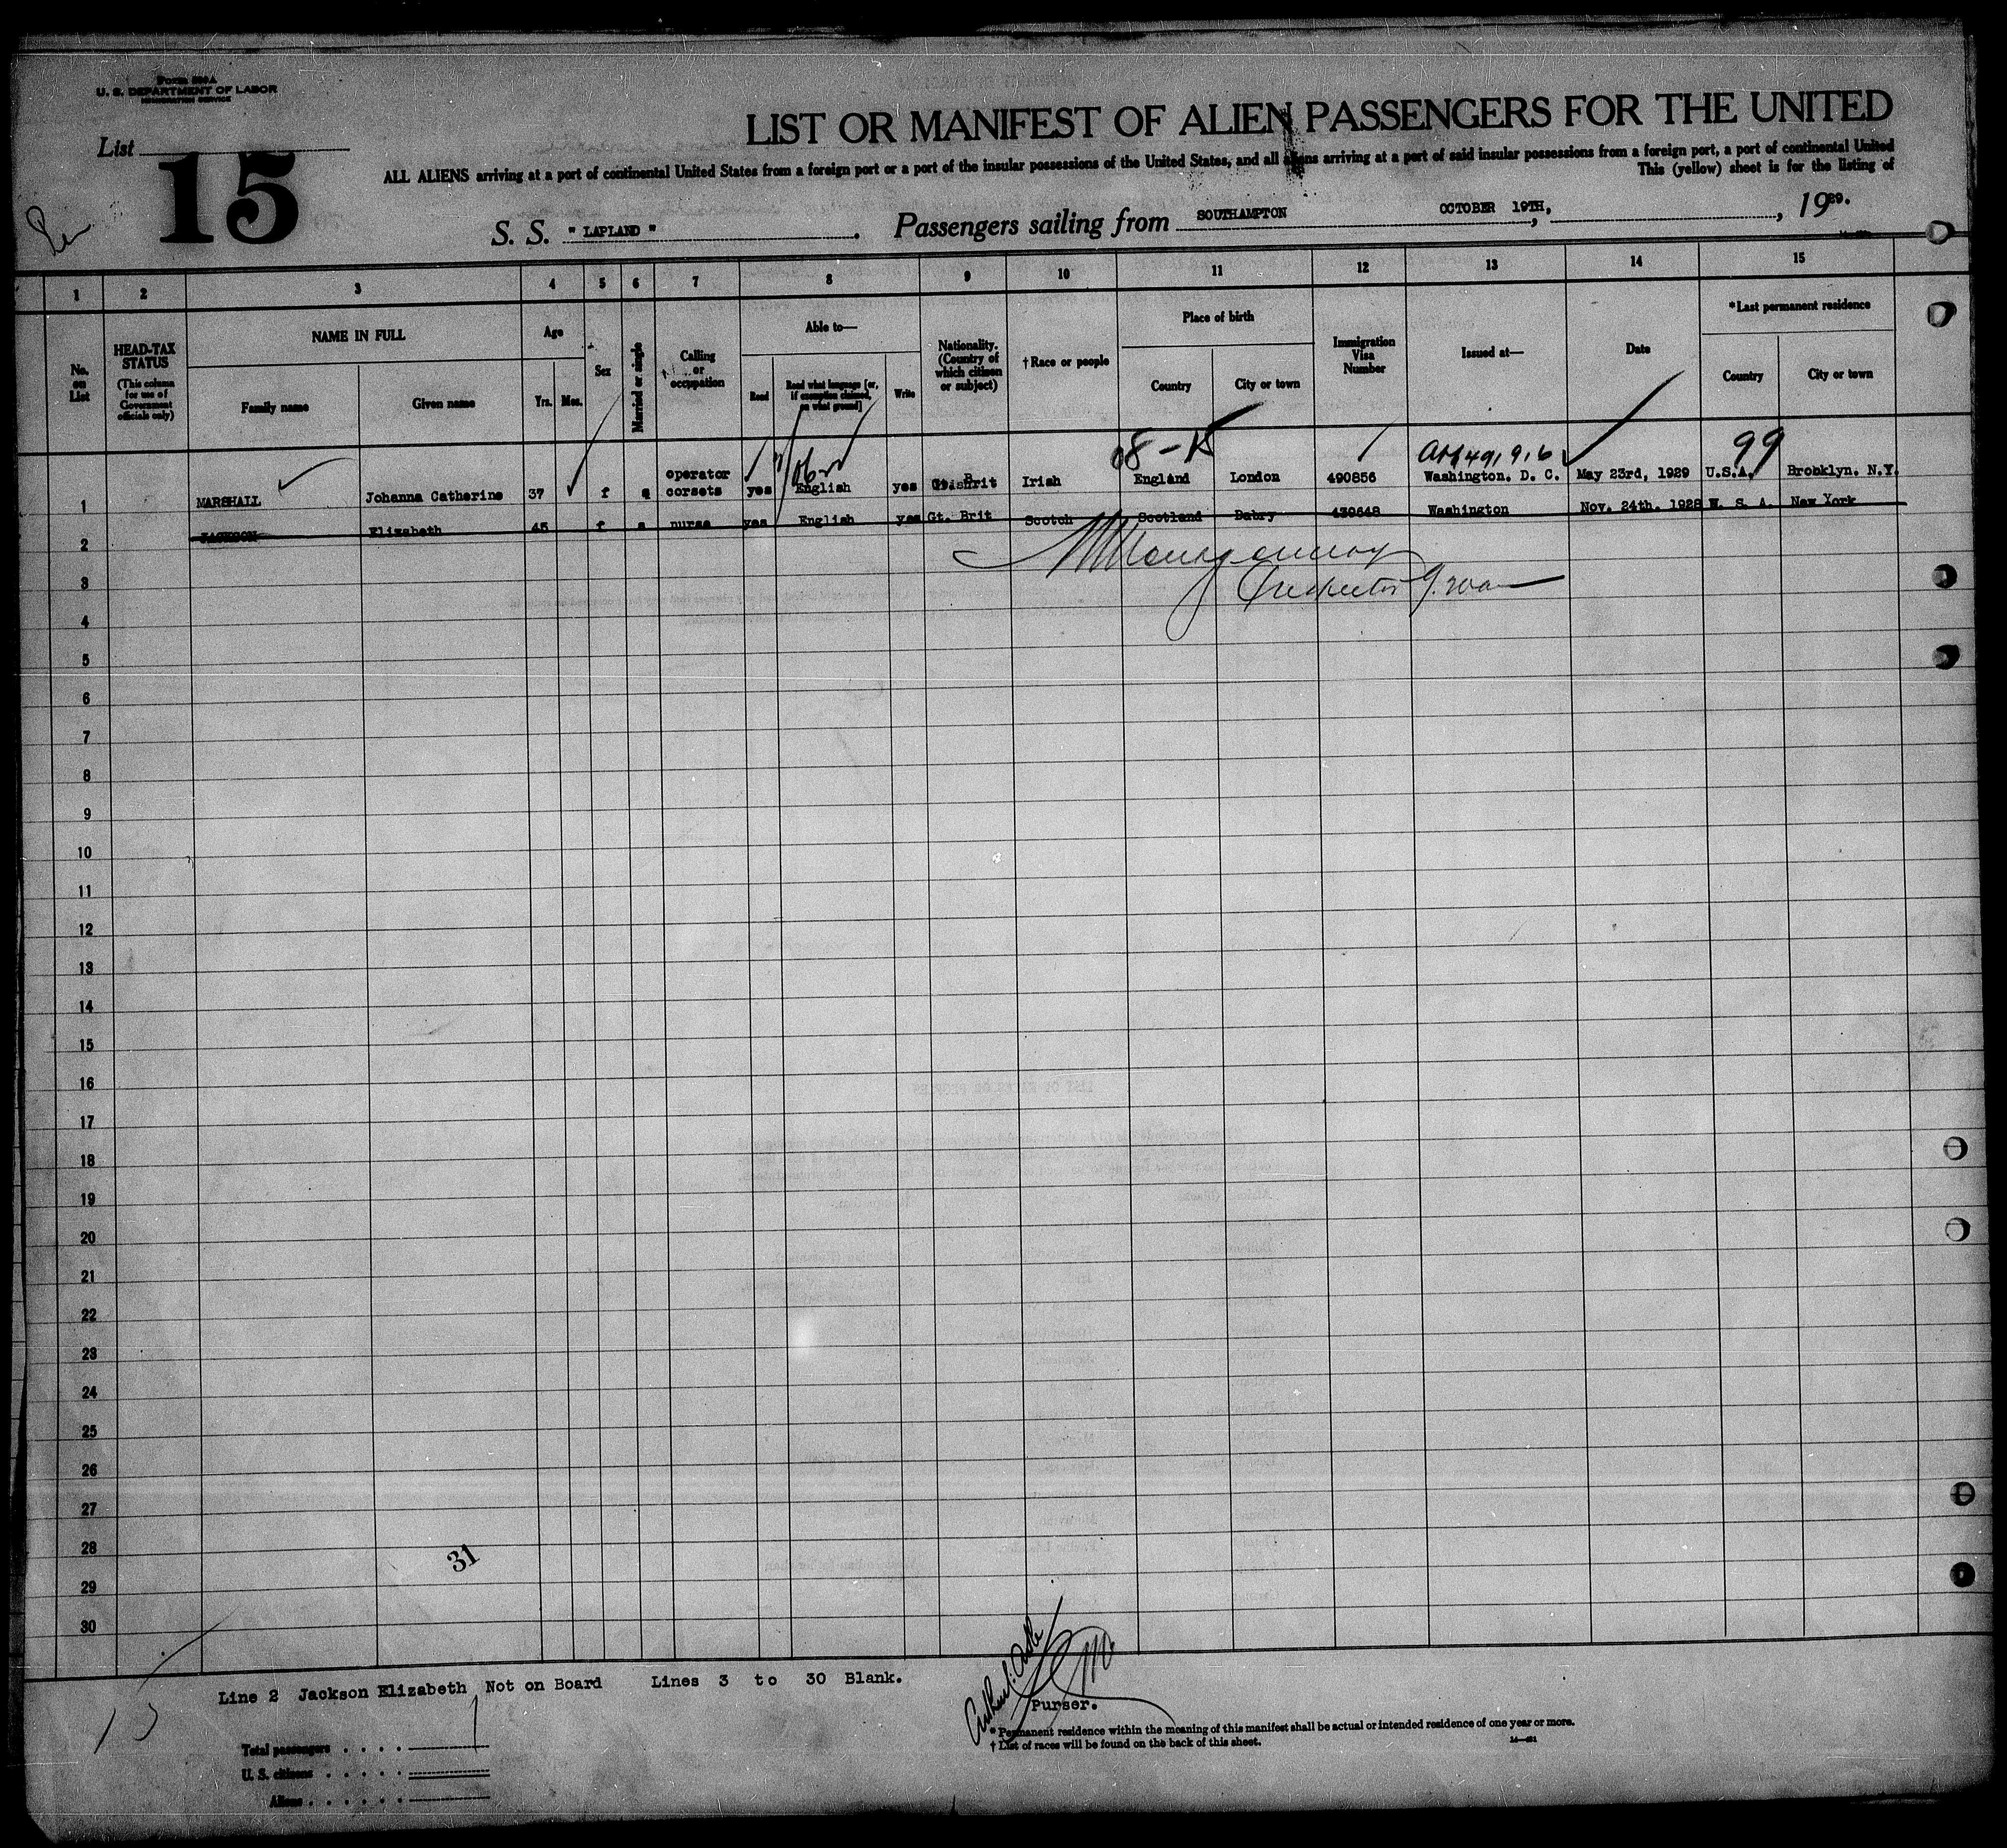 Form 500A
U. S. DEPARTMENT OF LABOR
IMMIGRATION SERVICE
List
15
LIST OR MANIFEST OF ALIEN PASSENGERS FOR THE UNITED
ALL ALIENS arriving at a port of continental United States from a foreign port or a port of the insular possessions of the United States, and all aliens arriving at a port of said insular possessions from a foreign port, a port of continental United
This (yellow) sheet is for the listing of
S. S. " LAPLAND " . Passengers sailing from SOUTHAMPTON , OCTOBER 19TH, , 1929.
1 2 3 4 5 6 7 8 9 10 11 12 13 14 15
No. on List
HEAD-TAX STATUS (This column for use of Government officials only)
NAME IN FULL
Family name Given name
Age
Yrs. Mos.
Sex
Married or single
Calling or occupation
Able to—
Read Read what language [or, if exemption claimed, on what ground] Write
Nationality. (Country of which citizen or subject)
†Race or people
Place of birth
Country City or town
Immigration Visa Number
Issued at—
Date
*Last permanent residence
Country City or town
08-15 99
1 MARSHALL Johanna Catherine 37 f operator corsets yes English yes Irish England London 490856 Washington. D. C. May 23rd, 1929 U.S.A. Brooklyn. N.Y.
2 JACKSON Elizabeth 45 f s nurse yes English yes Gt. Brit Scotch Scotland Dabry 439648 Washington Nov. 24th. 1928 U. S. A. New York
Montgomery
3
Inspector
4
5
6
7
8
9
10
11
12
13
14
15
16
17
18
19
20
21
22
23
24
25
26
27
28
31
29
30
Line 2 Jackson Elizabeth Not on Board Lines 3 to 30 Blank.
Purser.
* Permanent residence within the meaning of this manifest shall be actual or intended residence of one year or more.
† List of races will be found on the back of this sheet.
Total passengers . . . . 1
U. S. citizens . . . . .
Aliens . . . . . .